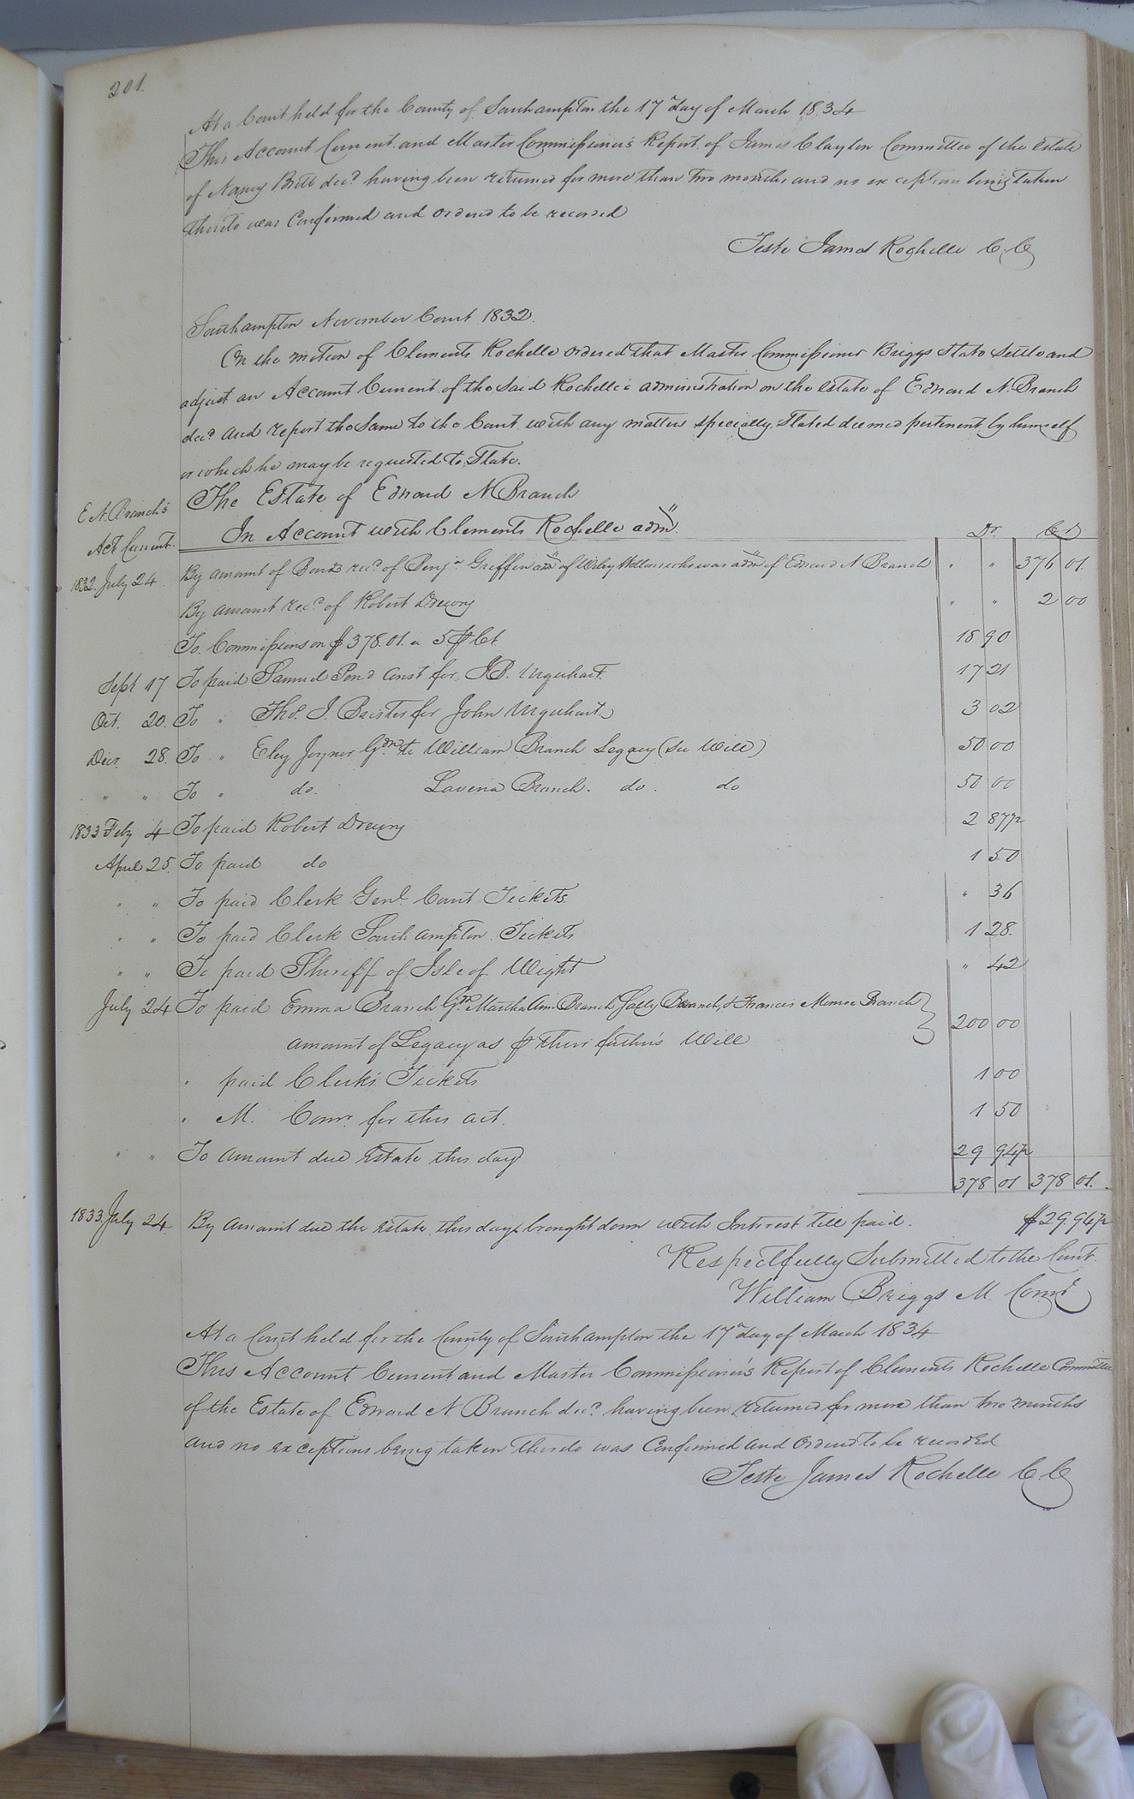 201.
At a Court held for the County of Southampton the 17th day of March 1834
This Account Current and Master Commissioner's Report of James Clayton Committee of the Estate
of Nancy Britt decd having been returned for more than two months and no exception being taken
thereto was Confirmed and ordered to be recorded
Teste James Rochelle C.C.
Southampton November Court 1832.
On the motion of Clements Rochelle ordered that Master Commissioner Briggs State Settle and
adjust an Account Current of the said Rochelle's administration on the estate of Edward N. Branch
decd and report the same to the Court with any matters specially stated deemed pertinent by himself
or which he may be requested to State.
E N Branch's
Act Current.
The Estate of Edward N Branch
In Account with Clements Rochelle admr Dr Cr
1832 July 24 By amount of Bonds recd of Benjn Griffin admr of Wiley who was admr of Edward N Branch " " 376 01.
By amount recd of Robert Drewry " " 2 00
To Commissions on $378.01. a 5 p Ct. 18 90
Sept 17 To paid Samuel Pond Const for J.B. Urquhart. 17 21
Oct. 20. To " Thos. J. Bristo for John Urquhart 3 02
Decr. 28. To " Eley Joyner Gdn to William Branch Legacy (See Will) 50 00
" " To " do. Lavenia Branch. do. do 50 00
1833 Feby 4 To paid Robert Drewry 2 87½
April 25. To paid do 1 50
" " To paid Clerk Genl. Court Tickets " 36
" " To paid Clerk Southampton Tickets 1 28.
" " To paid Sheriff of Isle of Wight " 42
July 24 To paid Emma Branch Gdn Martha Ann Branch, Sally Branch, & Francis Monroe Branch
amount of Legacy as p their father's Will 200 00
" paid Clerk's Tickets 1 00
" M. Comr. for this act. 1 50
" " To amount due Estate this day 29 94½
378 01 378 01.
1833 July 24 By amount due the Estate this day brought down with Interest till paid. $29.94½
Respectfully Submitted to the Court.
William Briggs M. Comr
At a Court held for the County of Southampton the 17th day of March 1834
This Account Current and Master Commissioner's Report of Clements Rochelle Committee
of the Estate of Edward N Branch decd. having been returned for more than two months
and no exceptions being taken thereto was Confirmed and Ordered to be recorded
Teste James Rochelle C.C.